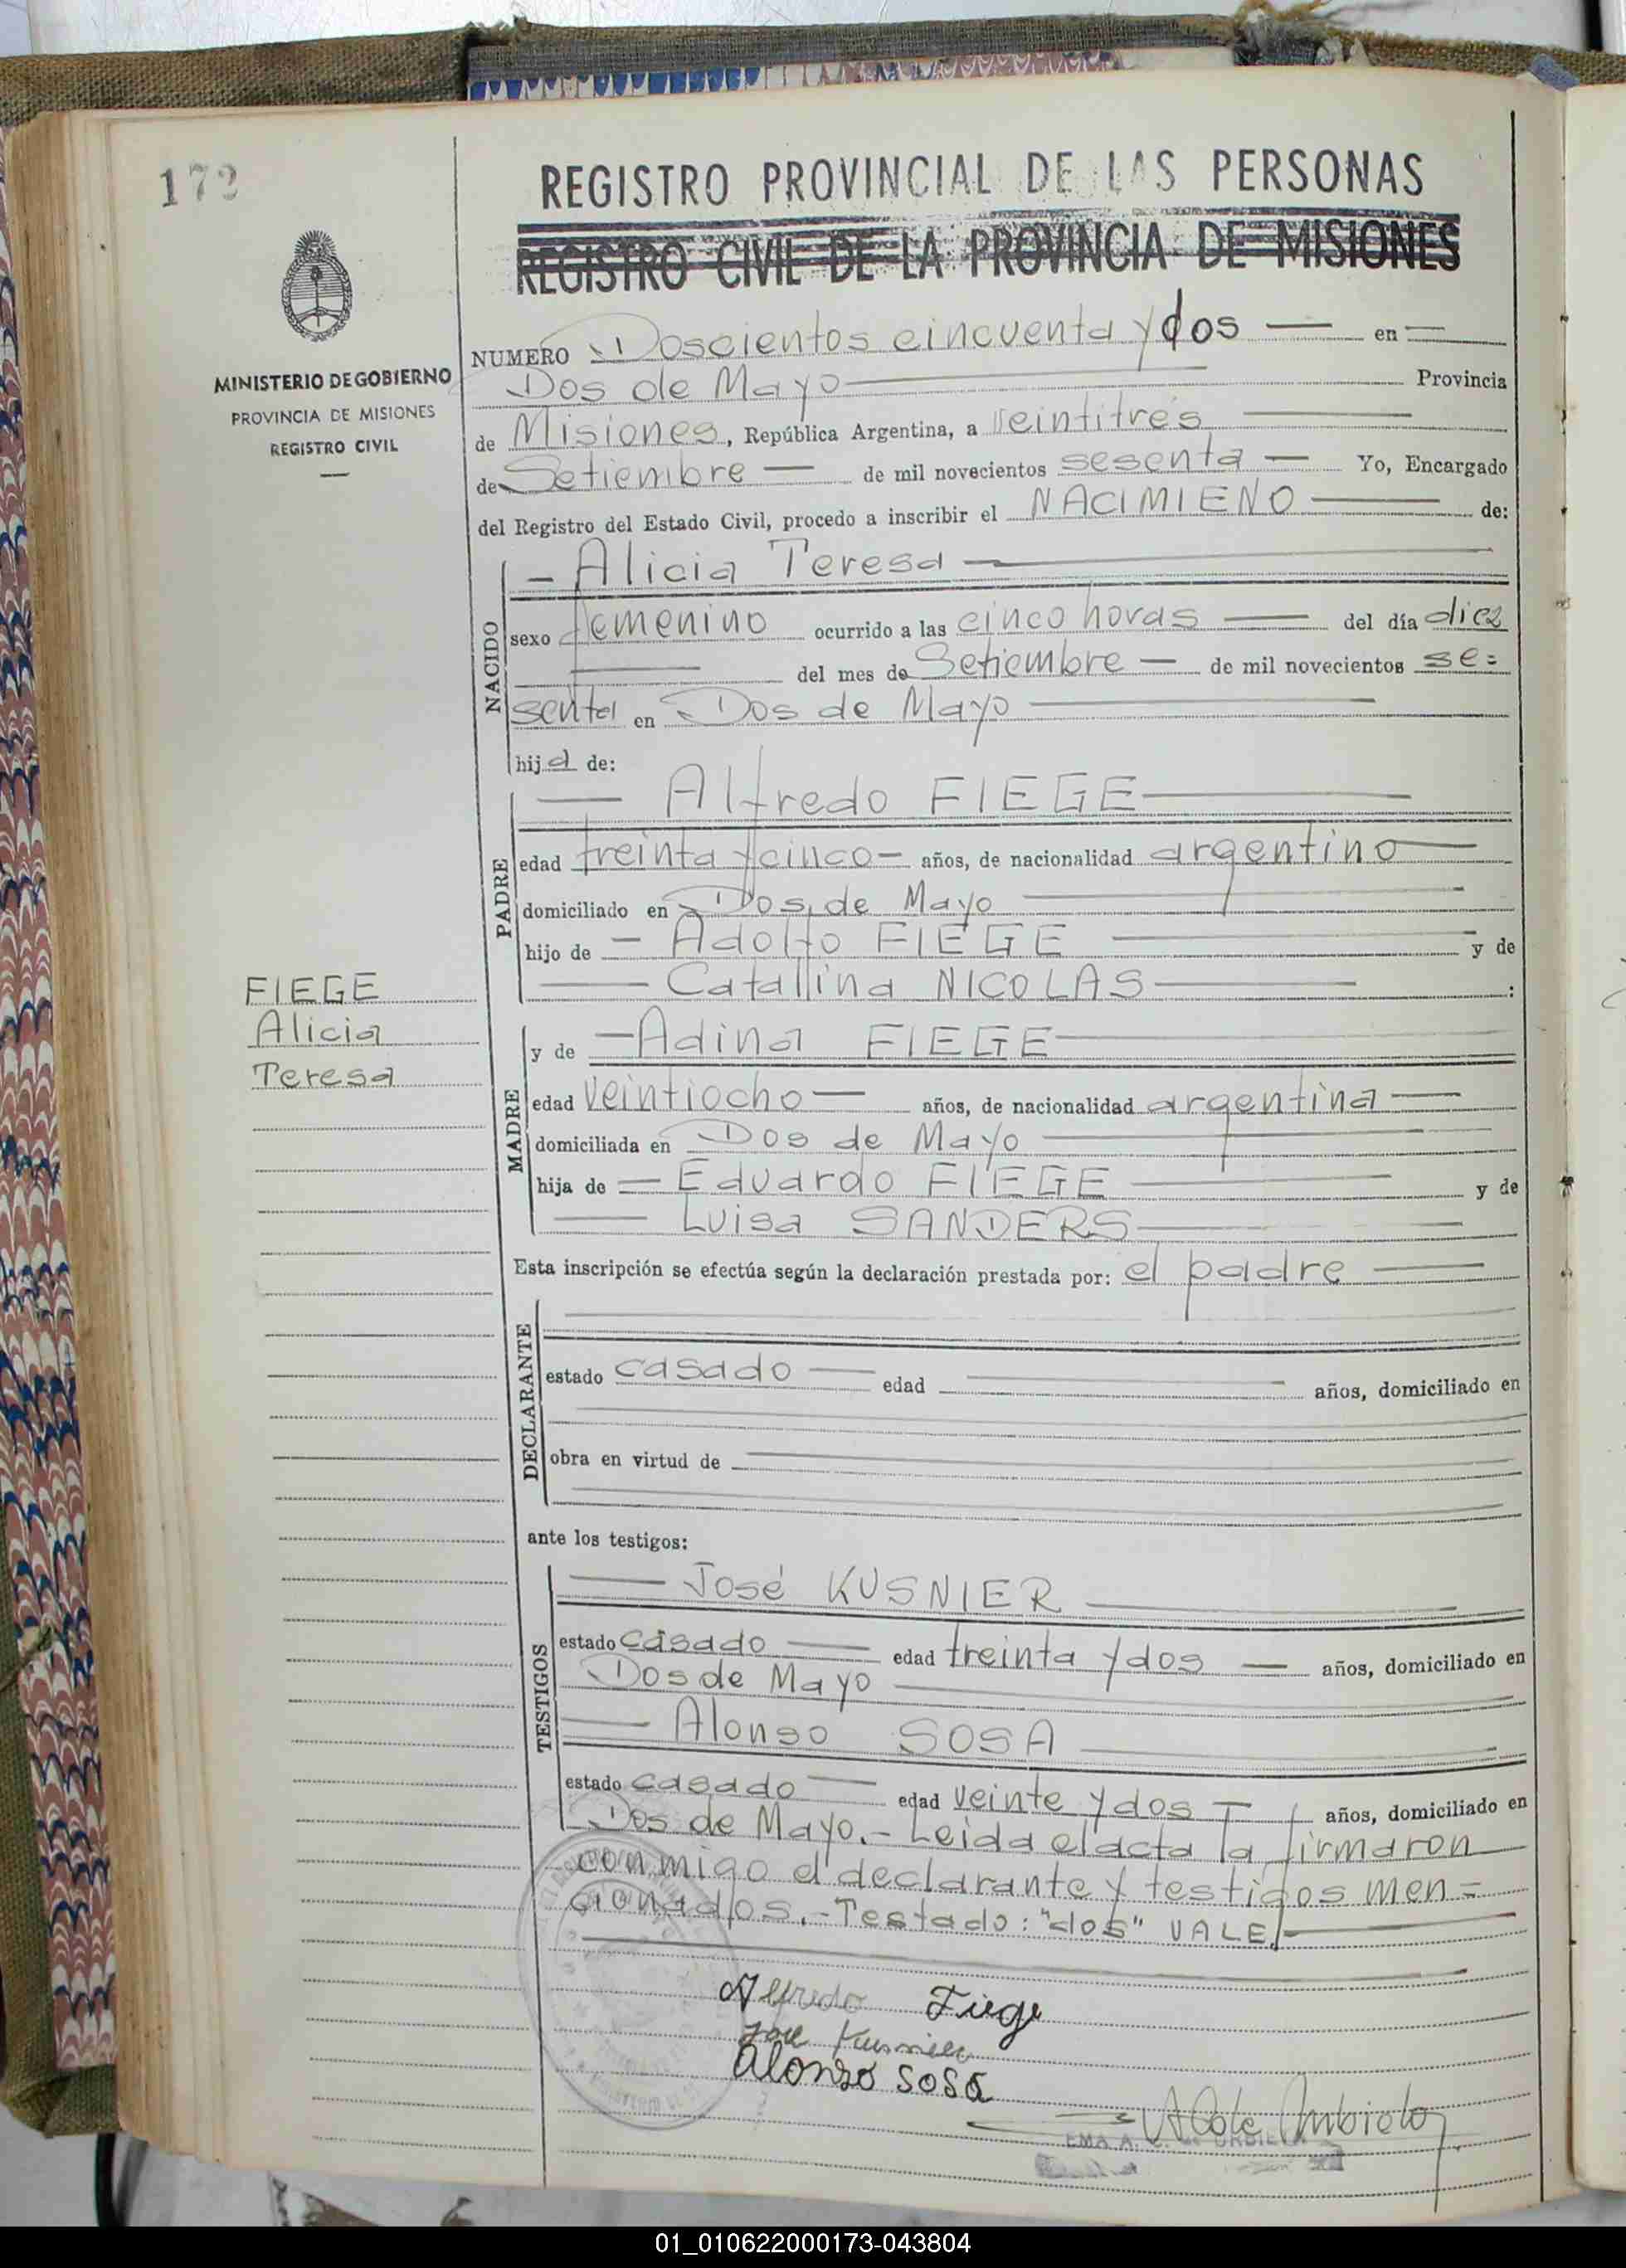 172
REGISTRO PROVINCIAL DE LAS PERSONAS
REGISTRO CIVIL DE LA PROVINCIA DE MISIONES
MINISTERIO DE GOBIERNO
PROVINCIA DE MISIONES
REGISTRO CIVIL
NUMERO Doscientos cincuenta y dos — en —
Dos de Mayo — Provincia
de Misiones, República Argentina, a Veintitrés —
de Setiembre — de mil novecientos sesenta — Yo, Encargado
del Registro del Estado Civil, procedo a inscribir el NACIMIENO — de:
NACIDO
— Alicia Teresa —
sexo femenino ocurrido a las cinco horas — del día diez
— del mes de Setiembre — de mil novecientos se=
senta en Dos de Mayo —
hija de:
PADRE
— Alfredo FIEGE —
edad treinta y cinco — años, de nacionalidad argentino —
domiciliado en Dos de Mayo —
hijo de — Adolfo FIEGE — y de
— Catallina NICOLAS — :
FIEGE
Alicia
Teresa
MADRE
y de — Adina FIEGE —
edad veintiocho — años, de nacionalidad argentina —
domiciliada en Dos de Mayo —
hija de — Eduardo FIEGE — y de
— Luisa SANDERS —
Esta inscripción se efectúa según la declaración prestada por: el padre —
DECLARANTE
estado casado — edad — años, domiciliado en
obra en virtud de —
ante los testigos:
TESTIGOS
— José KUSNIER —
estado casado — edad treinta y dos — años, domiciliado en
Dos de Mayo —
— Alonso SOSA —
estado casado — edad veinte y dos — años, domiciliado en
Dos de Mayo.- Leida el acta la firmaron
conmigo el declarante y testigos men=
cionados.- Testado: "dos" VALE.—
Alfredo Fiege
José Kusnier
Alonso Sosa
EMA A.
01_010622000173-043804